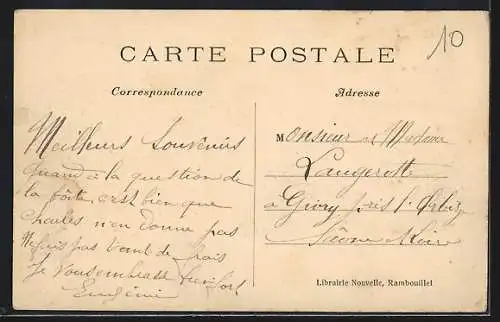 10
CARTE POSTALE
Correspondance
Adresse
Meilleurs Souvenirs
quand à la question de
la boîte c'est bien que
Charles n'en donne pas
pas tant de frais
Je vous embrasse bien fort
Eugénie
Monsieur et Madame
Laugerotte
à Givry près l'
Saône & Loire
Librairie Nouvelle, Rambouillet